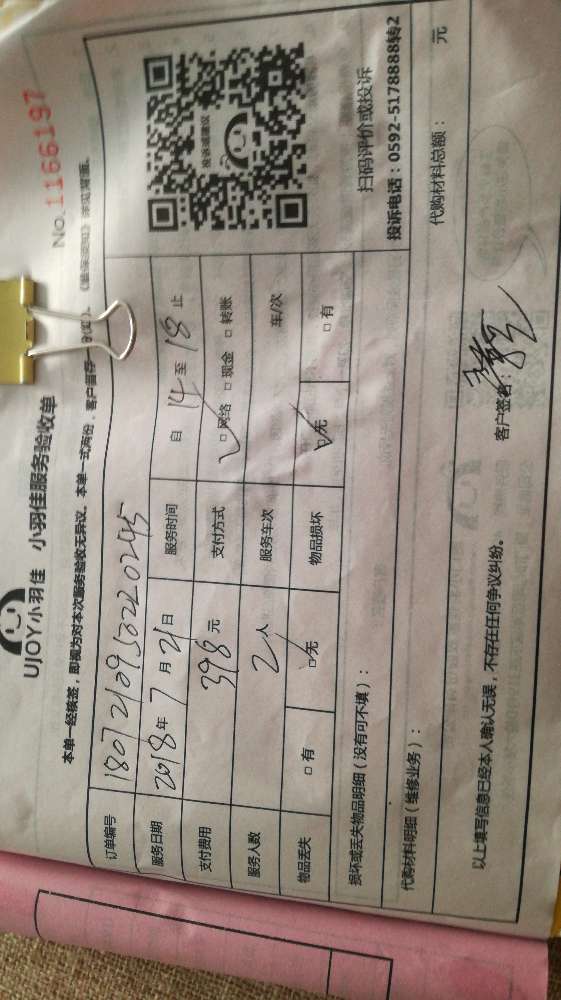 UJOY小羽佳 小羽佳服务验收单
No.1166197
本单一经核签，即视为对本次服务验收无异议。本单一式两份，客户留存一
订单编号 18072109530220245
服务日期 2018年7月21日 服务时间 自14至18止
支付费用 398元 支付方式 □网络 □现金 □转账
服务人数 2人 服务车次 车/次
物品丢失 □有 □无 物品损坏 □无 □有
投诉或建议
扫码评价或投诉
投诉电话：0592-5178888转2
损坏或丢失物品明细（没有可不填）：
代购材料明细（维修业务）： 代购材料总额： 元
以上填写信息已经本人确认无误，不存在任何争议纠纷。
客户签名：